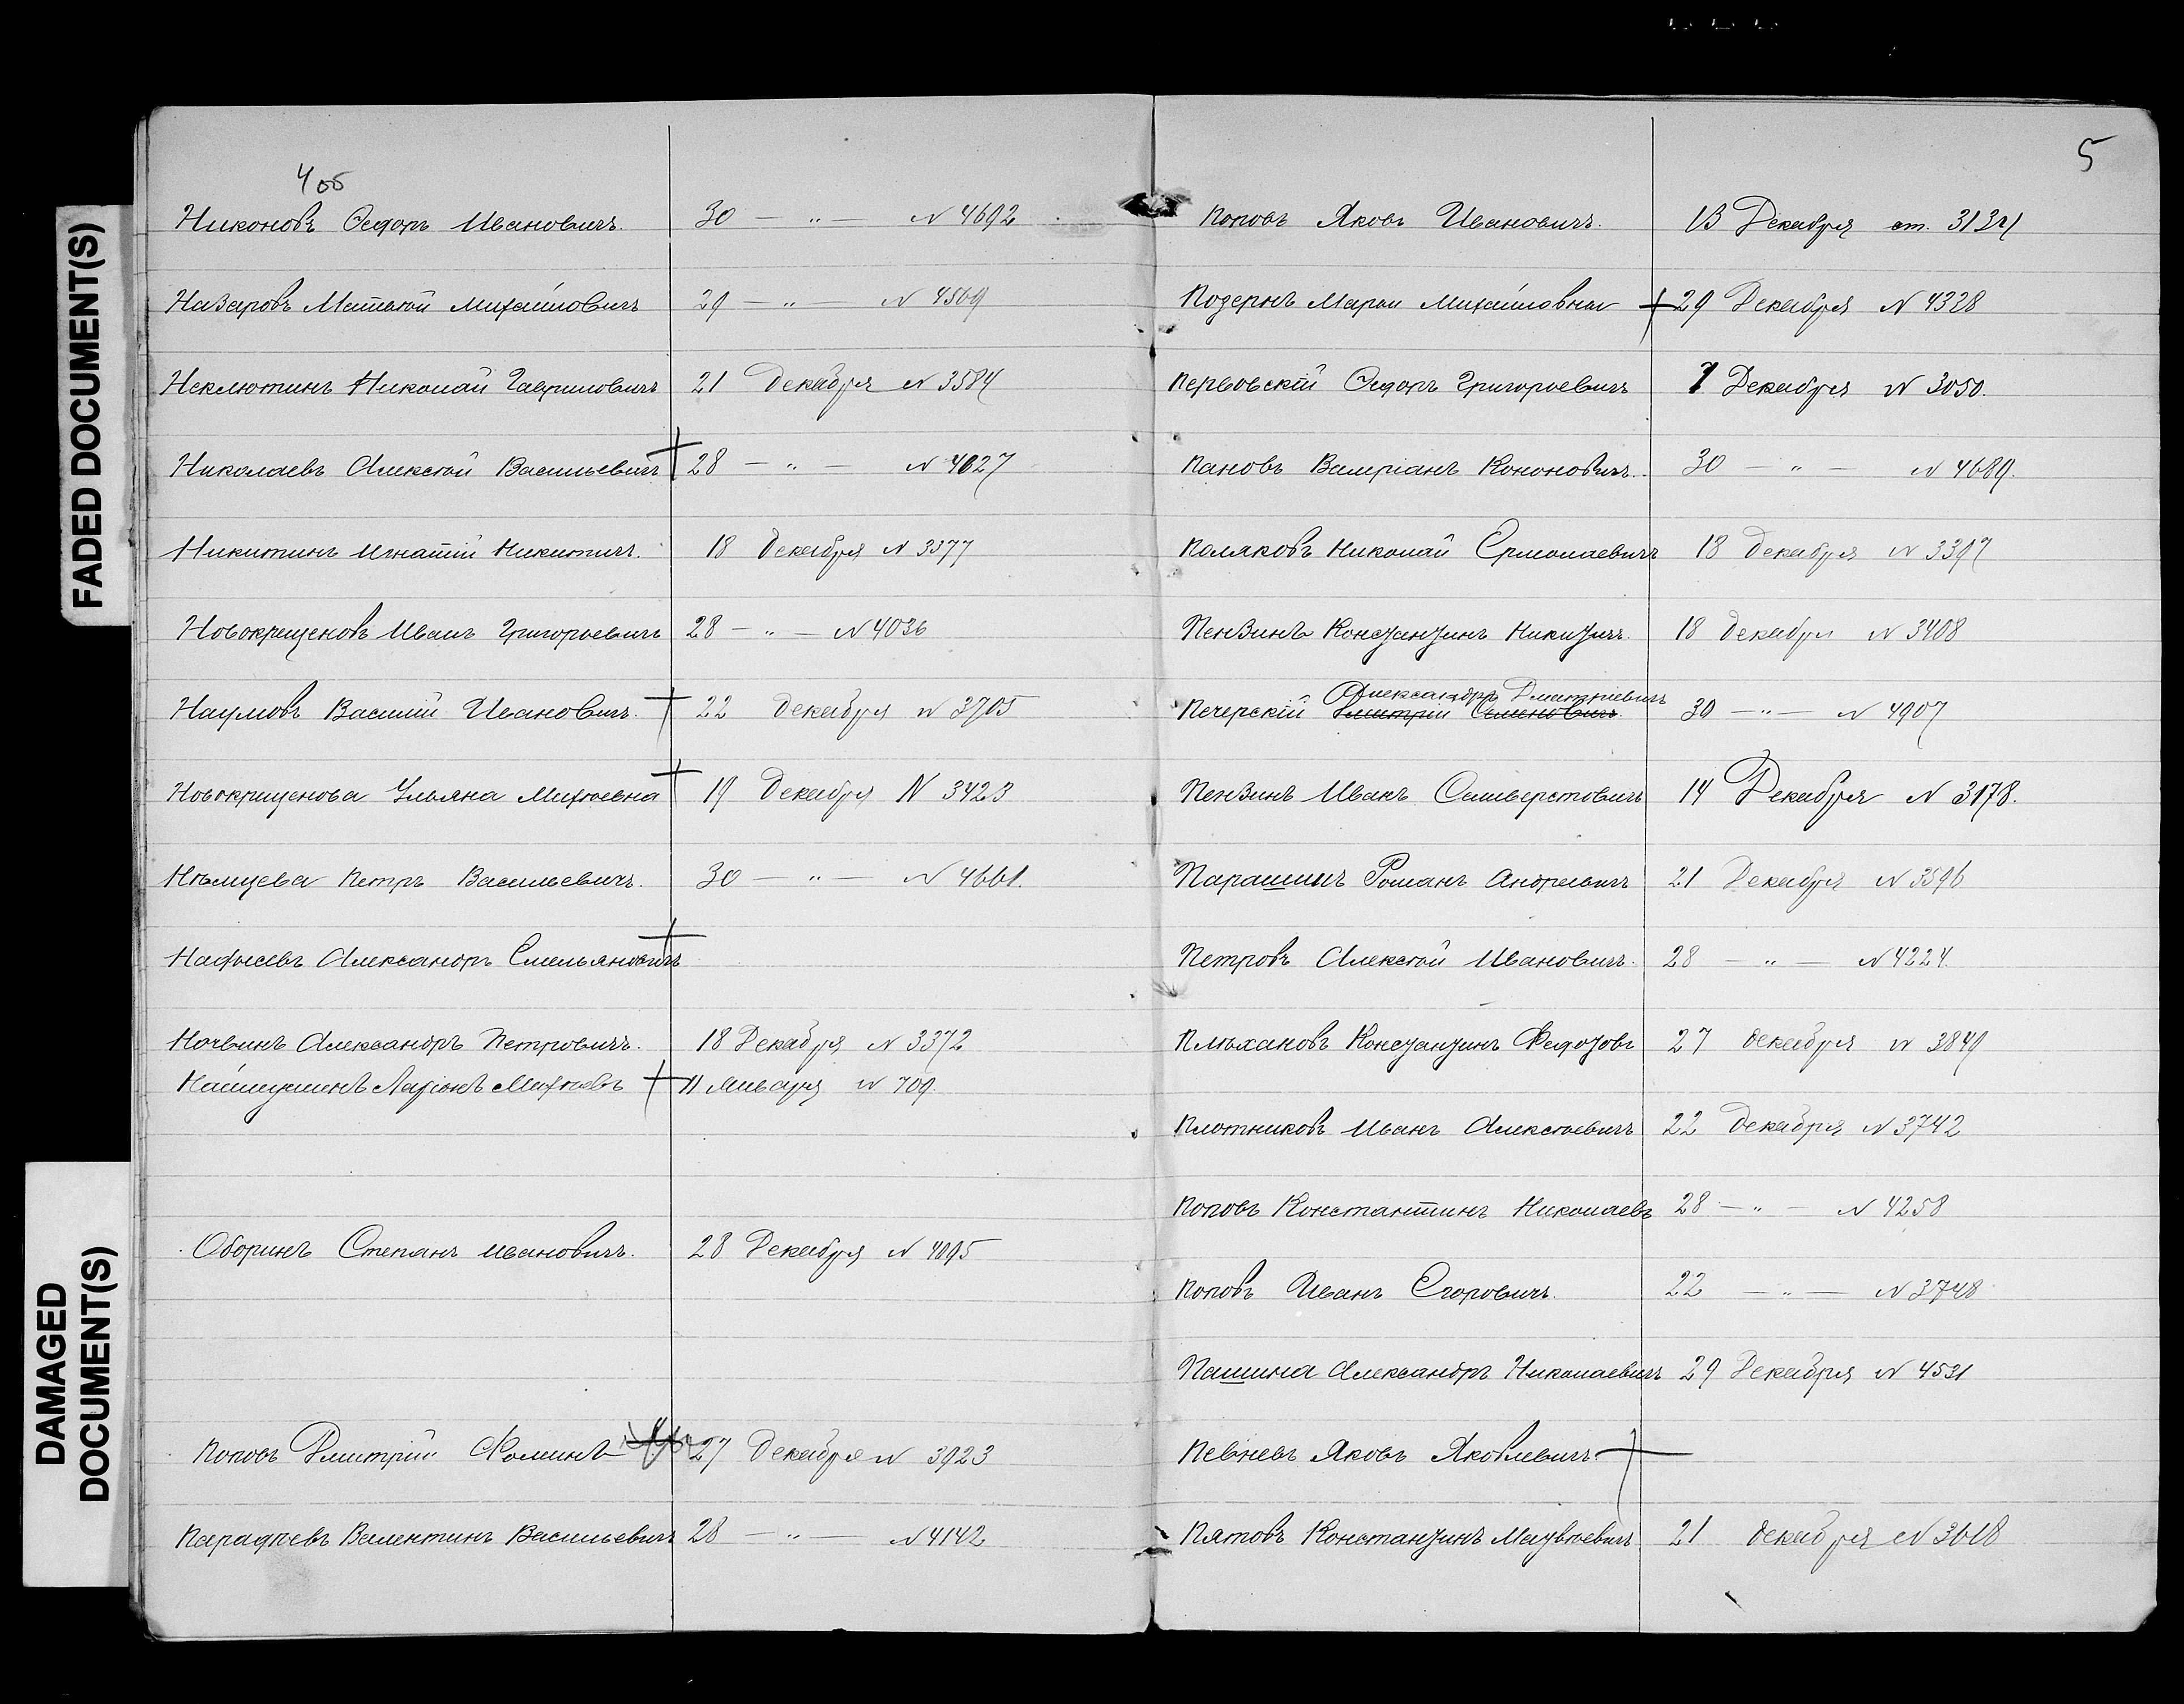 FADED DOCUMENT(S)
DAMAGED DOCUMENT(S)
4 об
Никоновъ Ѳедоръ Ивановичъ. 30 — „ — N 4692
Назаровъ Матвѣй Михайловичъ 29 — „ — N 4569
Неклютинъ Николай Гавриловичъ 21 Декабря N 3584
Николаевъ Алексѣй Васильевичъ + 28 — „ — N 4027
Никитинъ Игнатій Никитичъ. 18 Декабря N 3377
Новокрещеновъ Иванъ Григорьевичъ 28 — „ — N 4036
Наумовъ Василій Ивановичъ. + 22 Декабря N 3705
Новокрещенова Ульяна Михѣевна + 19 Декабря N 3423
Нѣмцева Петръ Васильевичъ. 30 — „ — N 4661.
Нафѣевъ Александръ Емельяновичъ +
Ночвинъ Александръ Петровичъ. 18 Декабря N 3372
Наймушинъ Ларіонъ Михѣевъ + 11 Января N 709.
Оборинъ Степанъ Ивановичъ. 28 Декабря N 4095
Поповъ Дмитрій Ѳоминъ 27 Декабря N 3923
Парафѣевъ Валентинъ Васильевичъ 28 — „ — N 4142
5
Поповъ Яковъ Ивановичъ. 13 Декабря ст. 3134
Позернъ Марія Михайловна + 29 Декабря N 4338
Перовскій Ѳедоръ Григорьевичъ 7 Декабря N 3050.
Пановъ Валеріанъ Кононовичъ. 30 — „ — N 4689.
Поляковъ Николай Ермолаевичъ 18 Декабря N 3397
Пензинъ Константинъ Никитичъ. 18 Декабря N 3408
Александръ Дмитріевичъ
Печерскій Дмитрій Семеновичъ. 30 — „ — N 4907
Пензинъ Иванъ Сильверстовичъ 14 Декабря N 3178.
Парашинъ Романъ Андреевичъ 21 Декабря N 3596
Петровъ Алексѣй Ивановичъ. 28 — „ — N 4224.
Плѣхановъ Константинъ Федотовъ 27 Декабря N 3849
Плотниковъ Иванъ Алексѣевичъ 22 Декабря N 3742
Поповъ Константинъ Николаевъ 28 — „ — N 4258
Поповъ Иванъ Егоровичъ. 22 — „ — N 3748
Пашина Александръ Николаевичъ 29 Декабря N 4531
Певневъ Яковъ Яковлевичъ +
Пятовъ Константинъ Матвѣевичъ 21 Декабря N 3618